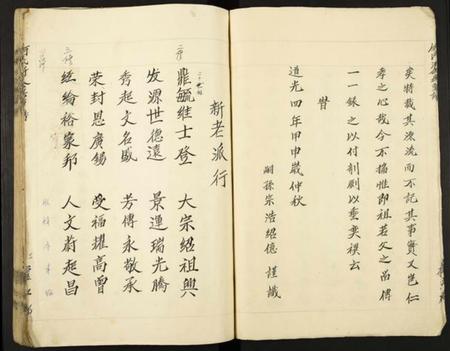 矣特裁其源流而不記其事實又豈仁
孝之心哉今不揣惟即祖若父之所傳
一一錄之以付剞劂以垂奕禩云
旹
道光四年甲申歲仲秋
嗣孫宗浩紹億謹識
新老派行
鼎毓維士登 大宗紹祖興
發源世德遠 景運瑞光騰
秀起文名盛 芳傳永敬承
榮封恩廣錫 受福耀高曾
經綸裕家邦 人文蔚起昌